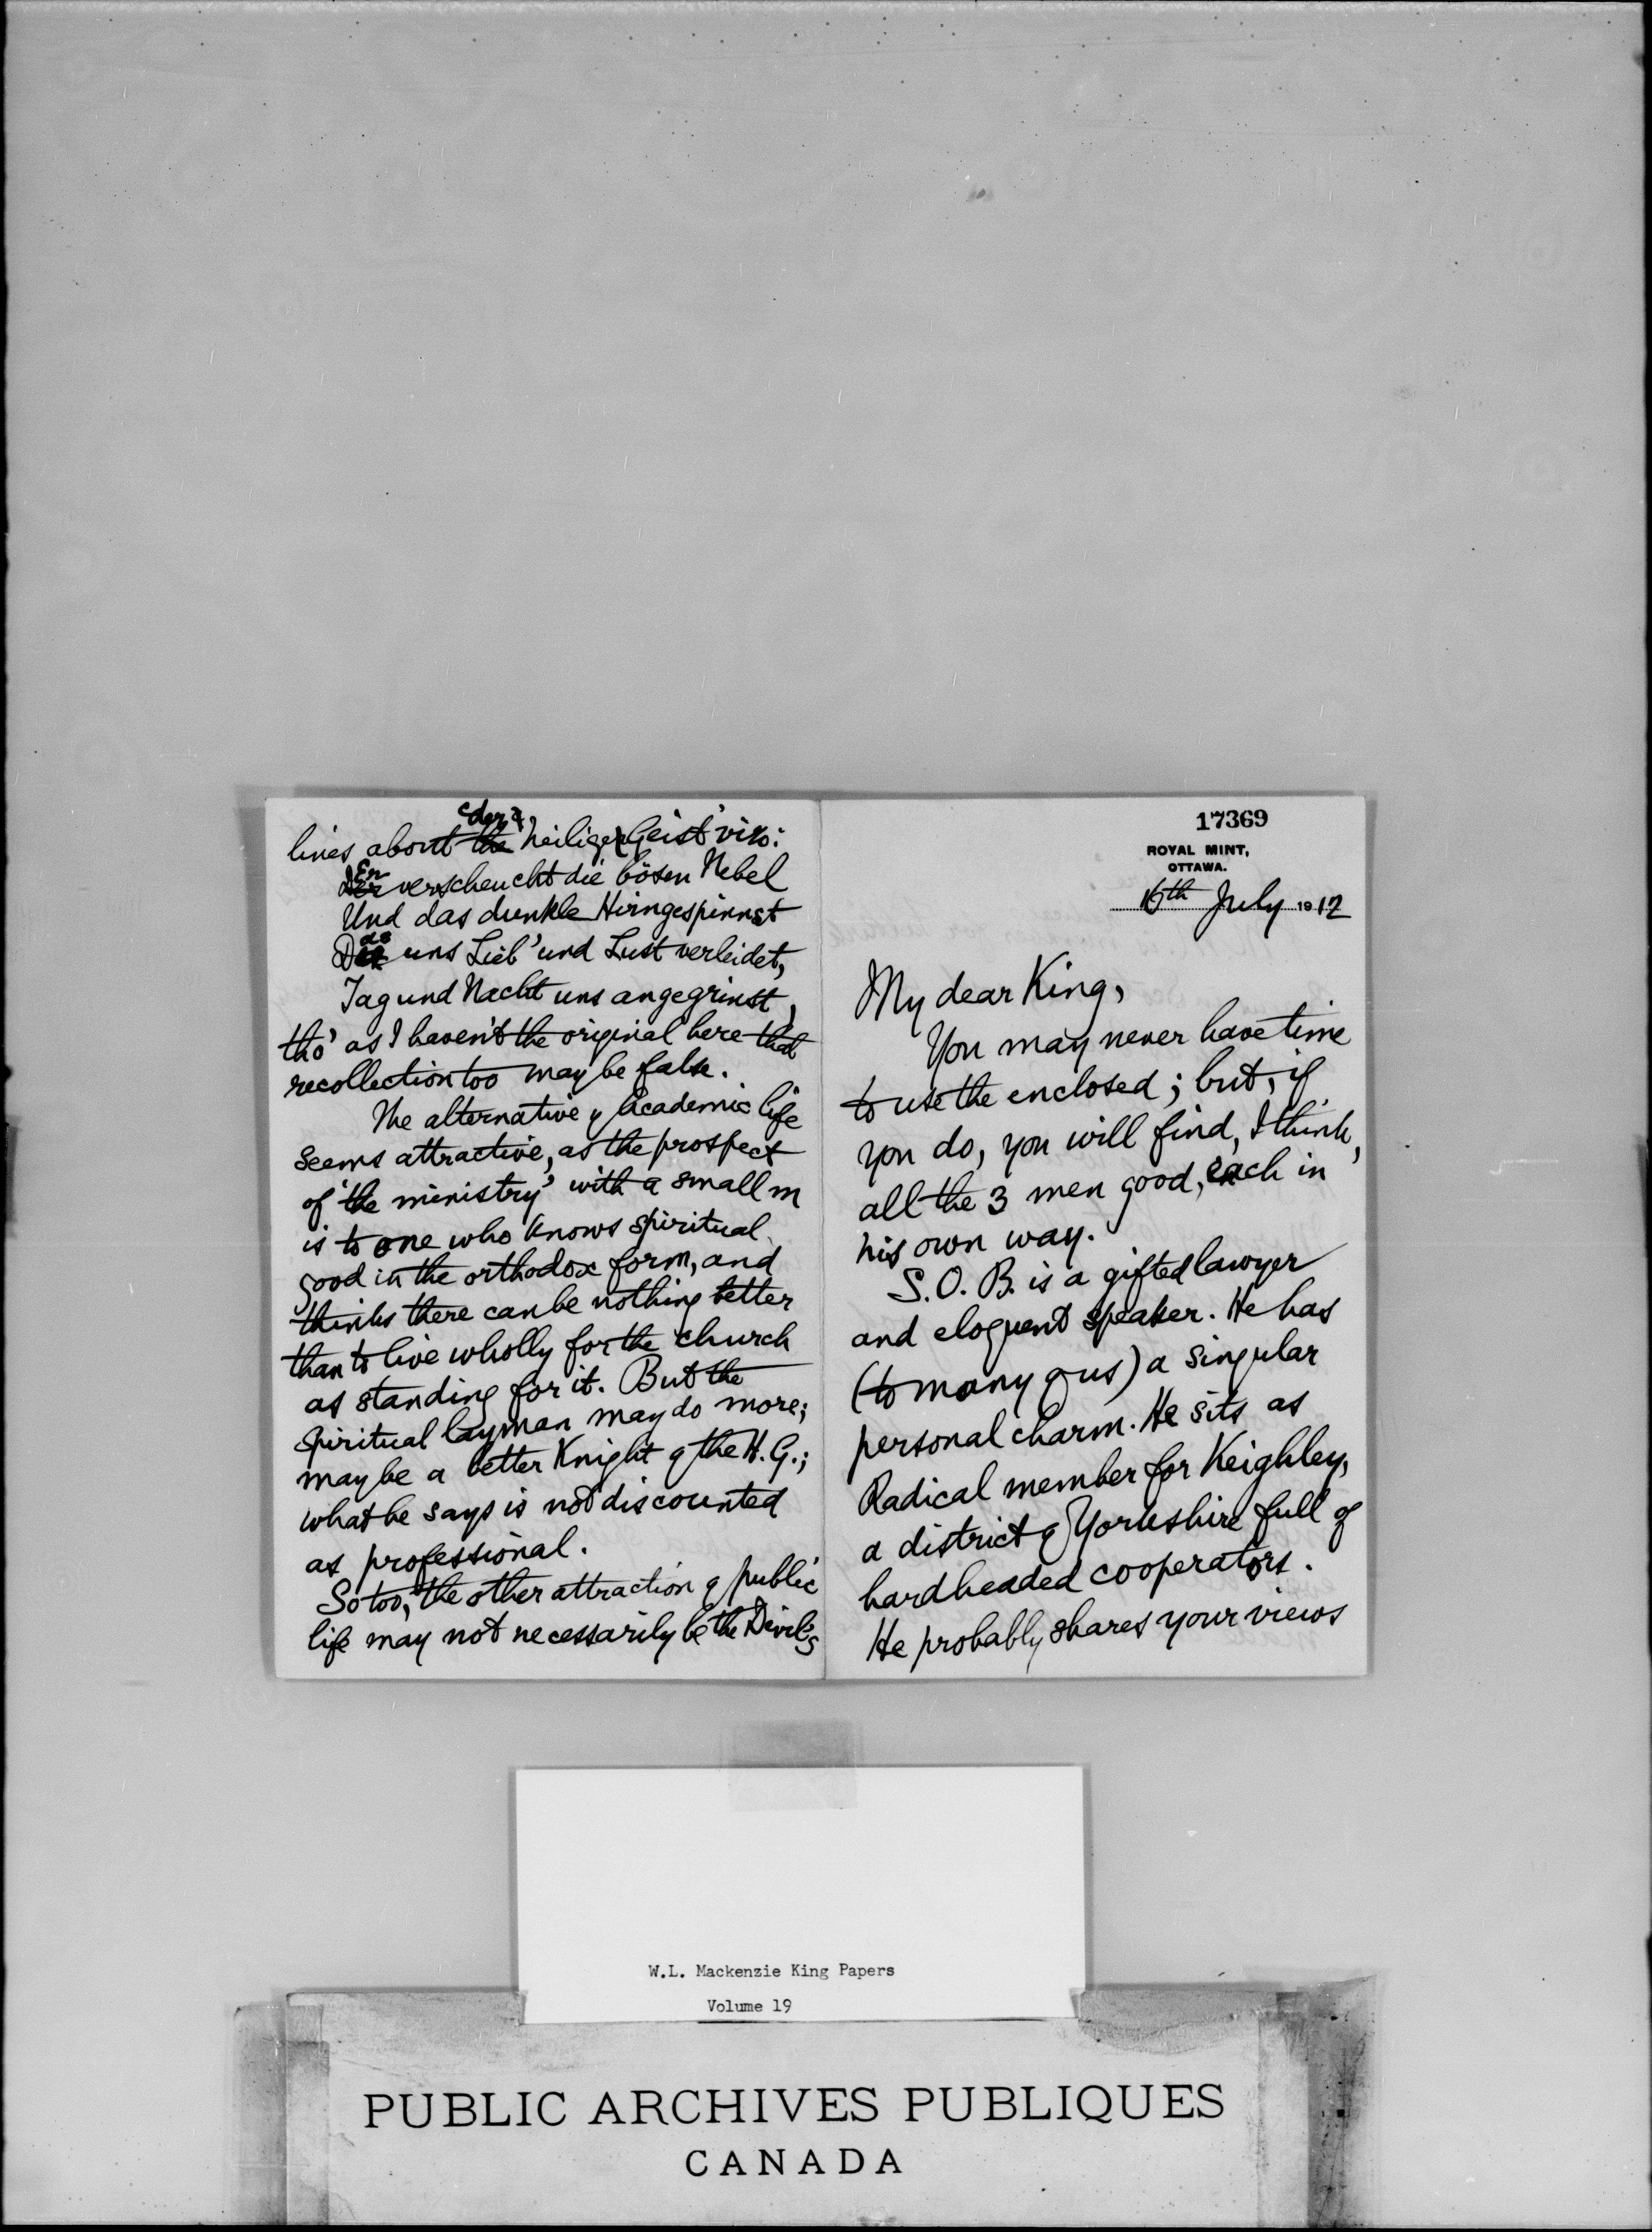 lines about der heilige Geist' viz:
Er verscheucht die bösen Nebel
Und das dunkle Hirngespinnst
Das uns Lieb' und Lust verleidet,
Tag und Nacht uns angegrinst,
tho' as I haven't the original here that
recollection too may be false.
The alternative of Academic life
seems attractive, as the prospect
of 'the ministry' with a small m
is to one who knows spiritual
good in the orthodox form, and
thinks there can be nothing better
than to live wholly for the church
as standing for it. But the
spiritual layman may do more;
may be a better Knight of the H.G.;
what he says is not discounted
as professional.
So too, the other attraction of public
life may not necessarily be the Devil's
17369
ROYAL MINT,
OTTAWA.
16th July 1912
My dear King,
You may never have time
to use the enclosed; but, if
you do, you will find, I think,
all the 3 men good, each in
his own way.
S.O.B. is a gifted lawyer
and eloquent speaker. He has
(to many of us) a singular
personal charm. He sits as
Radical member for Keighley,
a district of Yorkshire full of
hardheaded cooperators.
He probably shares your views
W.L. Mackenzie King Papers
Volume 19
PUBLIC ARCHIVES PUBLIQUES
CANADA